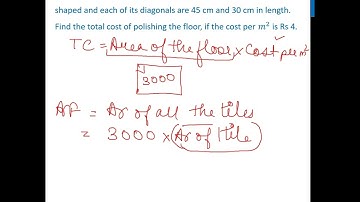 shaped and each of its diagonals are 45 cm and 30 cm in length.
Find the total cost of polishing the floor, if the cost per m² is Rs 4.
TC = Area of the floor × Cost per m²
3000
AF = Ar of all the tiles
= 3000 × Ar of 1 tile